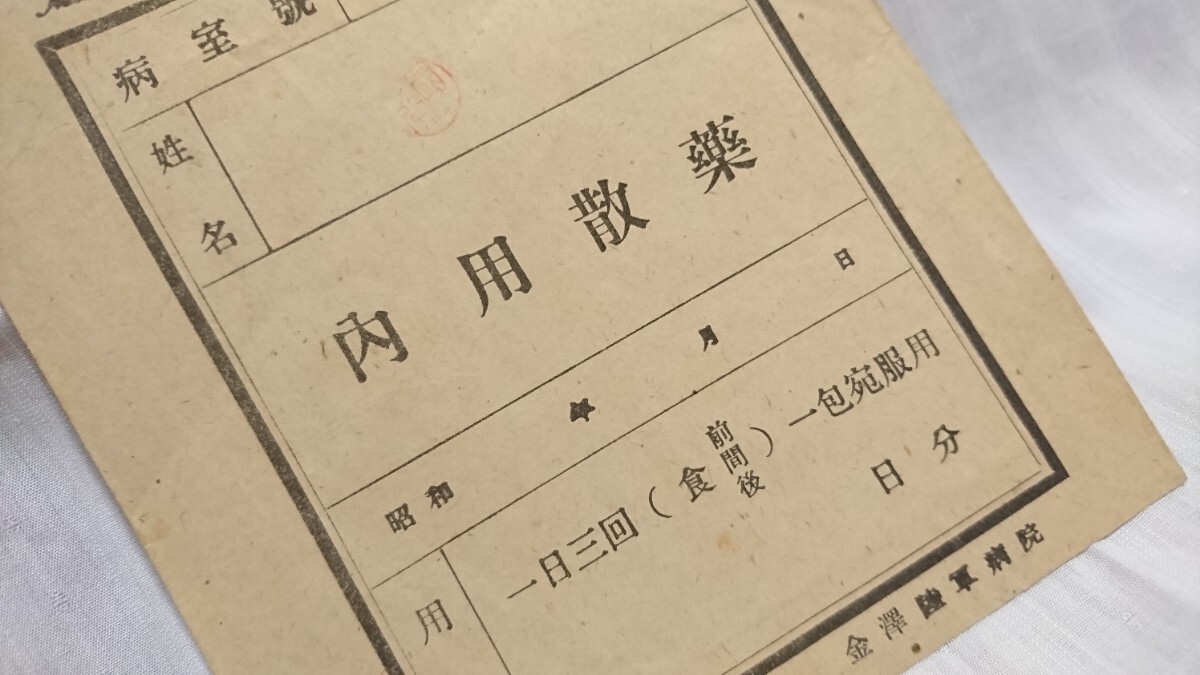 病室號
姓名
內用散藥
昭和 年 月 日
用
一日三回(食前間後)一包宛服用
日分
金澤陸軍病院